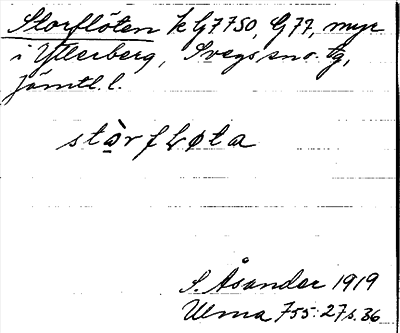 Storflöten k G7750, G77, myr
i Ytterberg, Svegs sn o. tg,
Jämtl. l.
stàrfLøta
S. Åsander 1919
Ulma 755:27 s. 36